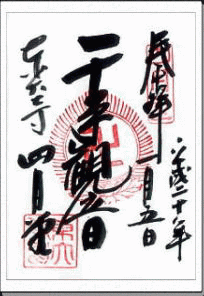 奉拝
平成二十年
一月五日
千手観音
東大寺
四月堂